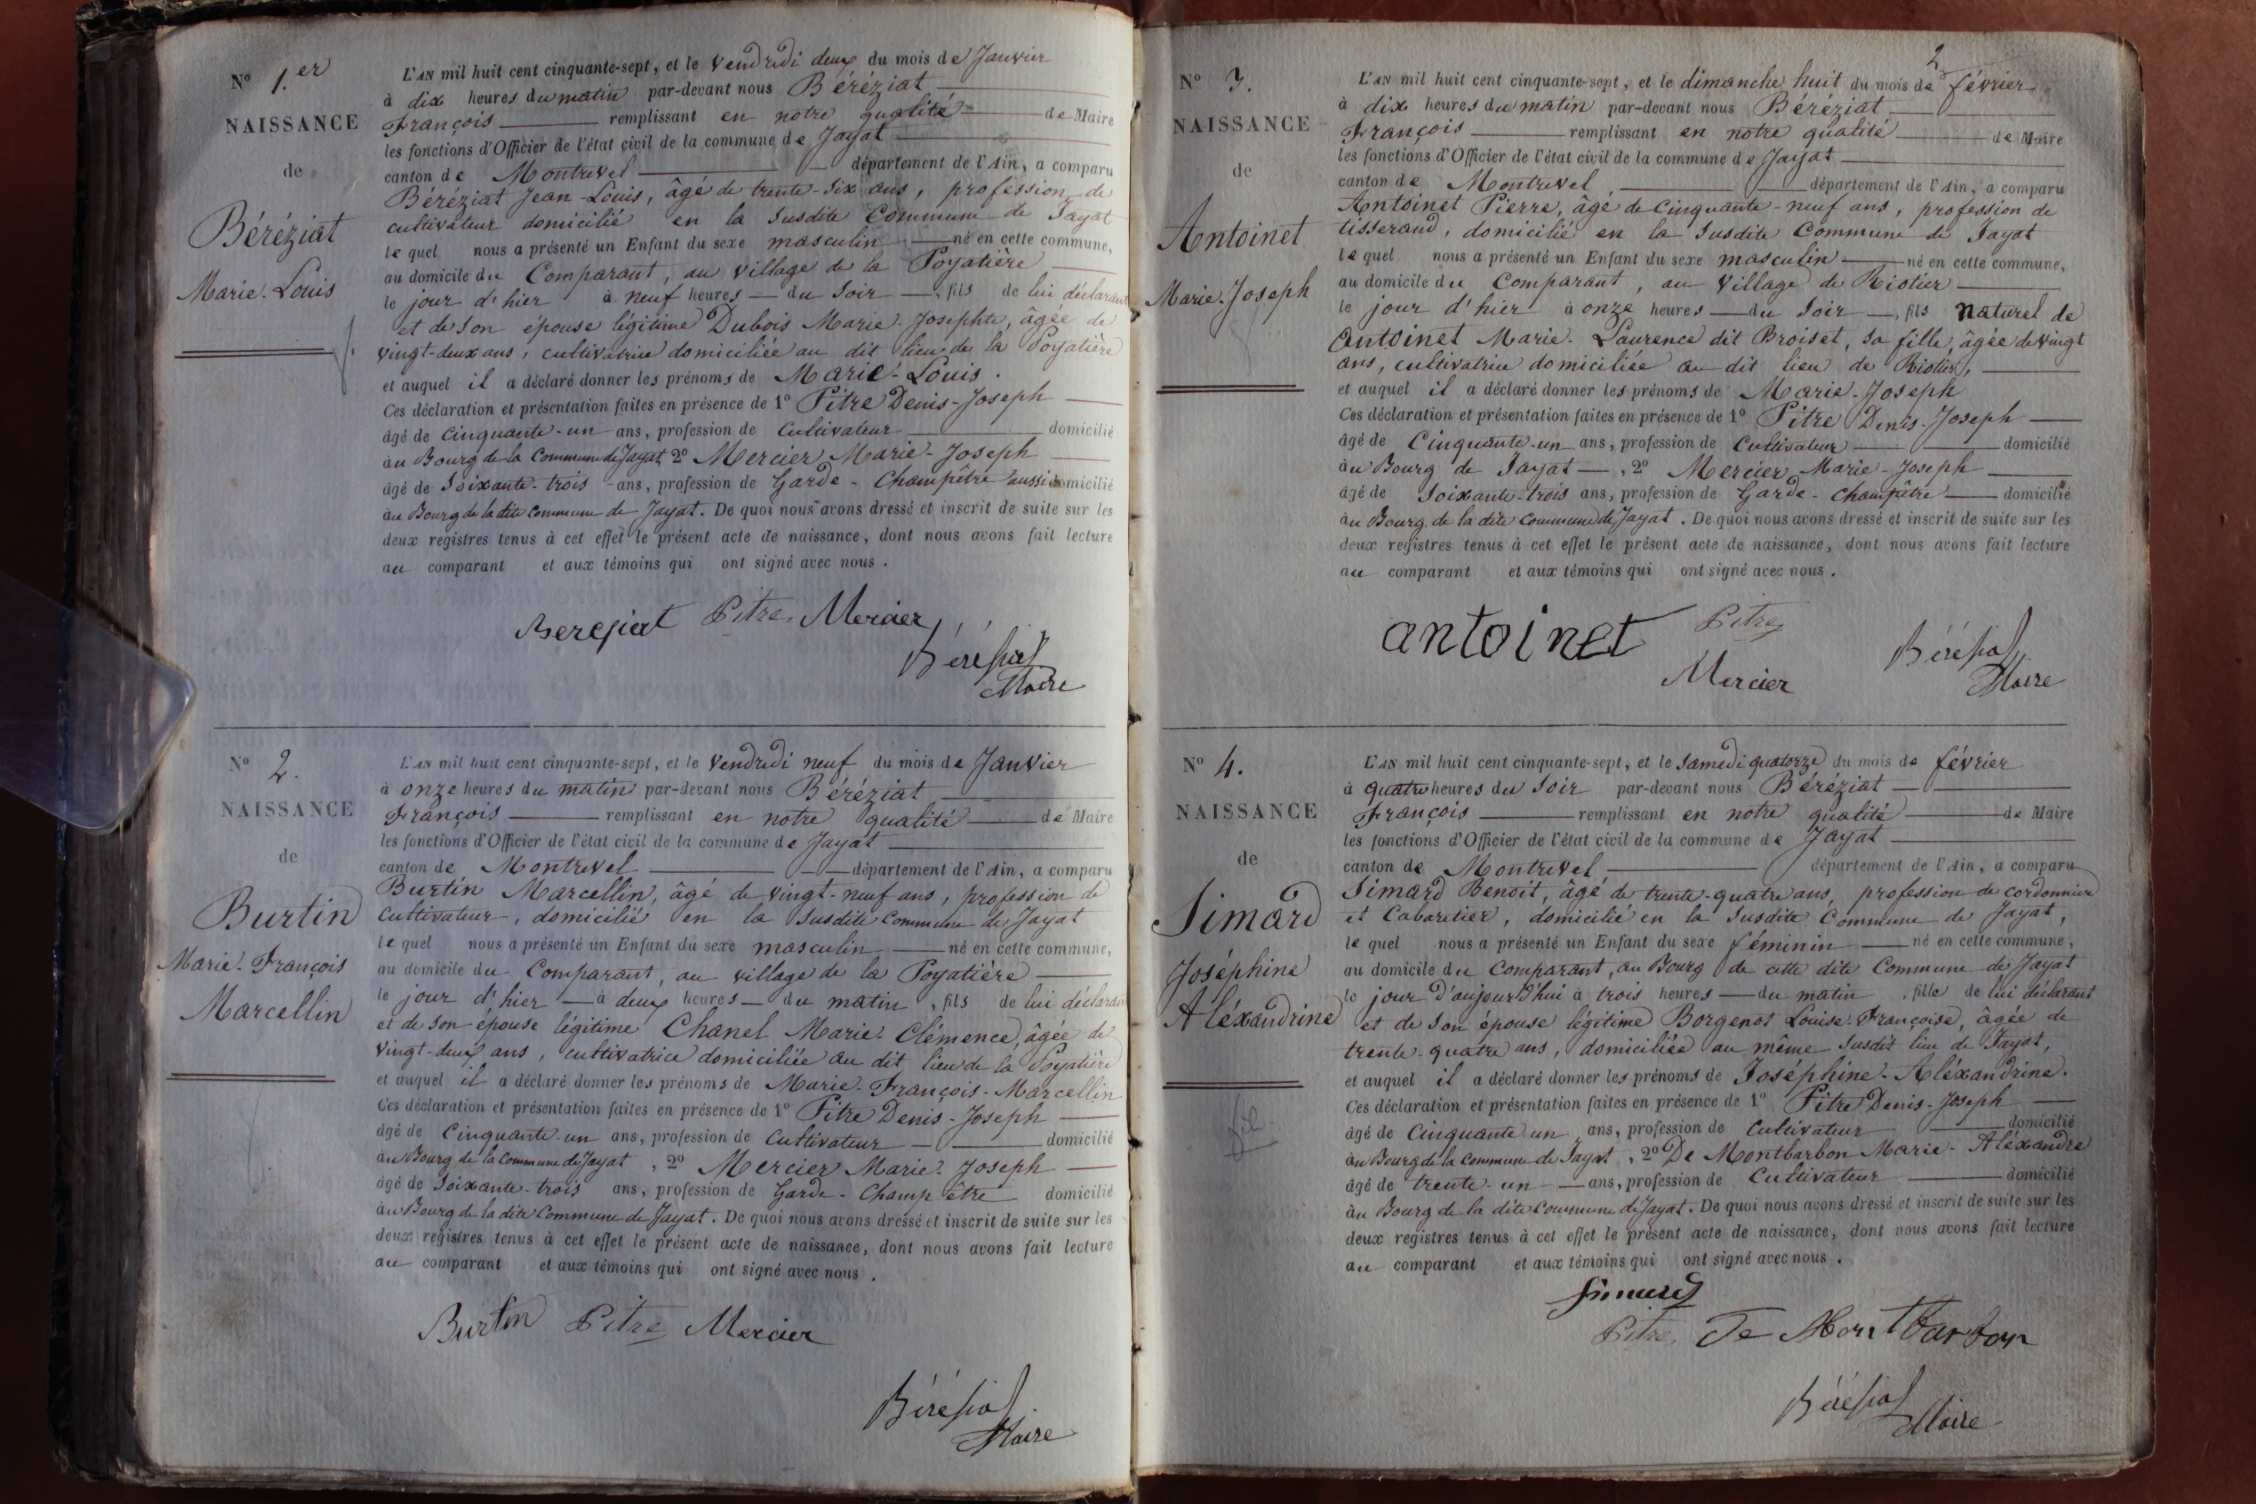 N° 1.er
NAISSANCE
de
Béréziat
Marie-Louis
L'AN mil huit cent cinquante-sept, et le vendredi deux du mois de Janvier
à dix heures du matin par-devant nous Béréziat
François remplissant en notre qualité de Maire
les fonctions d'Officier de l'état civil de la commune de Jayat
canton de Montrevel département de l'Ain, a comparu
Béréziat Jean-Louis, âgé de trente-six ans, profession de
cultivateur domicilié en la susdite Commune de Jayat
lequel nous a présenté un Enfant du sexe masculin né en cette commune,
au domicile du Comparant, au village de la Poyatière
le jour d'hier à neuf heures du soir, fils de lui déclarant
et de son épouse légitime Dubois Marie-Josephte, âgée de
vingt-deux ans, cultivatrice domiciliée au dit lieu de la Poyatière
et auquel il a déclaré donner les prénoms de Marie-Louis.
Ces déclaration et présentation faites en présence de 1° Pitre Denis-Joseph
âgé de cinquante-un ans, profession de Cultivateur domicilié
au Bourg de la Commune de Jayat, 2° Mercier Marie-Joseph
âgé de soixante-trois ans, profession de Garde-Champêtre aussi domicilié
au Bourg de la dite Commune de Jayat. De quoi nous avons dressé et inscrit de suite sur les
deux registres tenus à cet effet le présent acte de naissance, dont nous avons fait lecture
au comparant et aux témoins qui ont signé avec nous.
Bereziat Pitre Mercier
Béréziat
Maire
N° 2.
NAISSANCE
de
Burtin
Marie-François
Marcellin
L'AN mil huit cent cinquante-sept, et le vendredi neuf du mois de Janvier
à onze heures du matin par-devant nous Béréziat
François remplissant en notre qualité de Maire
les fonctions d'Officier de l'état civil de la commune de Jayat
canton de Montrevel département de l'Ain, a comparu
Burtin Marcellin, âgé de vingt-neuf ans, profession de
Cultivateur, domicilié en la susdite Commune de Jayat
lequel nous a présenté un Enfant du sexe masculin né en cette commune,
au domicile du Comparant, au village de la Poyatière
le jour d'hier à deux heures du matin, fils de lui déclarant
et de son épouse légitime Chanel Marie-Clémence, âgée de
vingt-deux ans, cultivatrice domiciliée au dit lieu de la Poyatière
et auquel il a déclaré donner les prénoms de Marie-François-Marcellin
Ces déclaration et présentation faites en présence de 1° Pitre Denis-Joseph
âgé de cinquante-un ans, profession de Cultivateur domicilié
au Bourg de la Commune de Jayat, 2° Mercier Marie-Joseph
âgé de soixante-trois ans, profession de Garde-Champêtre domicilié
au Bourg de la dite Commune de Jayat. De quoi nous avons dressé et inscrit de suite sur les
deux registres tenus à cet effet le présent acte de naissance, dont nous avons fait lecture
au comparant et aux témoins qui ont signé avec nous.
Burtin Pitre Mercier
Béréziat
Maire
2
N° 3.
NAISSANCE
de
Antoinet
Marie-Joseph
L'AN mil huit cent cinquante-sept, et le dimanche huit du mois de février
à dix heures du matin par-devant nous Béréziat
François remplissant en notre qualité de Maire
les fonctions d'Officier de l'état civil de la commune de Jayat
canton de Montrevel, département de l'Ain, a comparu
Antoinet Pierre, âgé de cinquante-neuf ans, profession de
tisserand, domicilié en la susdite Commune de Jayat
lequel nous a présenté un Enfant du sexe masculin né en cette commune,
au domicile du Comparant, au village de Riotier
le jour d'hier à onze heures du soir, fils naturel de
Antoinet Marie-Laurence dit Broiset, sa fille, âgée de vingt
ans, cultivatrice domiciliée au dit lieu de Riotier,
et auquel il a déclaré donner les prénoms de Marie-Joseph
Ces déclaration et présentation faites en présence de 1° Pitre Denis-Joseph
âgé de Cinquante-un ans, profession de Cultivateur domicilié
au Bourg de Jayat, 2° Mercier Marie-Joseph
âgé de soixante-trois ans, profession de Garde-champêtre domicilié
au Bourg de la dite Commune de Jayat. De quoi nous avons dressé et inscrit de suite sur les
deux registres tenus à cet effet le présent acte de naissance, dont nous avons fait lecture
au comparant et aux témoins qui ont signé avec nous.
antoinet Pitre
Mercier
Béréziat
Maire
N° 4.
NAISSANCE
de
Simard
Joséphine
Aléxandrine
L'AN mil huit cent cinquante-sept, et le samedi quatorze du mois de février
à quatre heures du soir par-devant nous Béréziat
François remplissant en notre qualité de Maire
les fonctions d'Officier de l'état civil de la commune de Jayat
canton de Montrevel département de l'Ain, a comparu
Simard Benoit, âgé de trente-quatre ans, profession de cordonnier
et Cabaretier, domicilié en la susdite Commune de Jayat,
lequel nous a présenté un Enfant du sexe féminin né en cette commune,
au domicile du Comparant, au Bourg de cette dite Commune de Jayat
le jour d'aujourd'hui à trois heures du matin, fille de lui déclarant
et de son épouse légitime Borgenot Louise-Françoise, âgée de
trente-quatre ans, domiciliée au même susdit lieu de Jayat,
et auquel il a déclaré donner les prénoms de Joséphine-Aléxandrine.
Ces déclaration et présentation faites en présence de 1° Pitre Denis-Joseph
âgé de Cinquante-un ans, profession de Cultivateur domicilié
au Bourg de la Commune de Jayat, 2° De Montbarbon Marie-Aléxandre
âgé de trente-un ans, profession de Cultivateur domicilié
au Bourg de la dite Commune de Jayat. De quoi nous avons dressé et inscrit de suite sur les
deux registres tenus à cet effet le présent acte de naissance, dont nous avons fait lecture
au comparant et aux témoins qui ont signé avec nous.
Simard
Pitre De Montbarbon
Béréziat
Maire